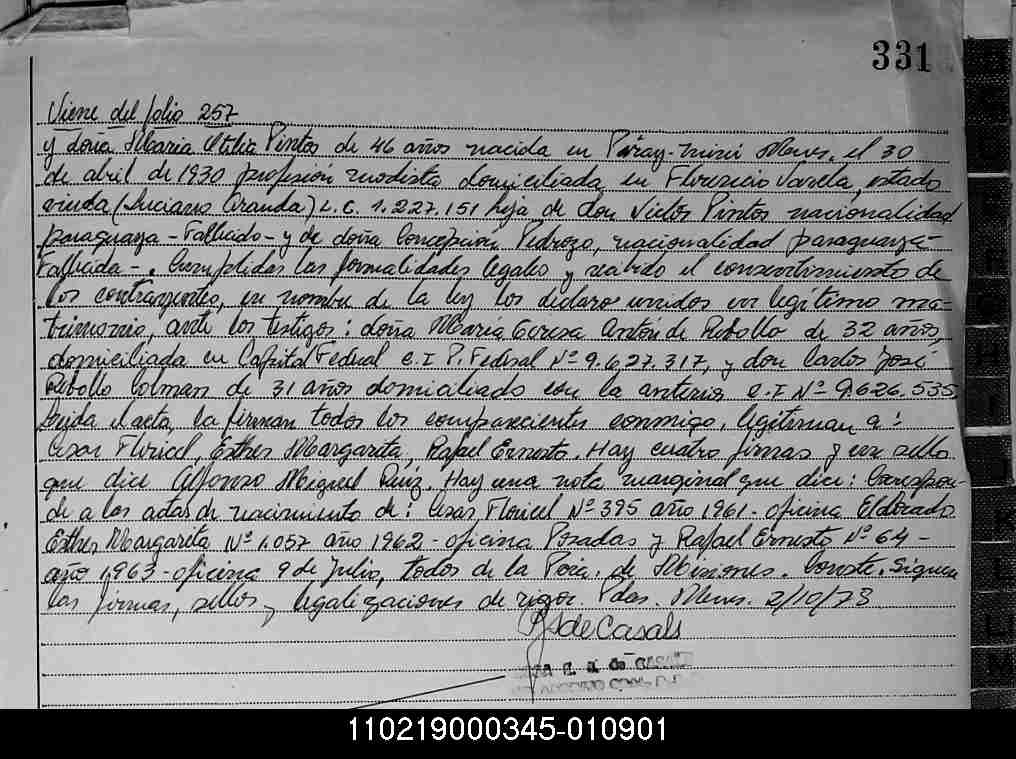 331
Viene del folio 257
y doña Maria Otilia Pintos de 46 años nacida en Piray-miní Mnes. el 30
de abril de 1930 profesión modista domiciliada en Florencio Varela, estado
viuda (Luciano Aranda) L.C. 1.227.151 hija de don Victor Pintos nacionalidad
paraguaya - Fallecido - y de doña Concepcion Pedrozo, nacionalidad paraguaya -
Fallecida - . Cumplidas las formalidades legales y recibido el consentimiento de
los contrayentes, en nombre de la ley los declaro unidos en legítimo ma-
trimonio, ante los testigos: doña María Teresa Antón de Rebollo de 32 años,
domiciliada en Capital Federal C.I P. Federal Nº 9.627.317, y don Carlos José
Rebollo Colman de 31 años domiciliado con la anterior C.I Nº 9.626.535
Leída el acta, la firman todos los comparecientes conmigo. Legitiman a:
Cesar Floricel, Esther Margarita, Rafael Ernesto. Hay cuatro firmas y un sello
que dice Alfonso Miguel Ruíz. Hay una nota marginal que dice: Correspon-
de a las actas de nacimiento de: Cesar Floricel Nº 395 año 1961 - oficina Eldorado
Esther Margarita Nº 1.057 año 1962 - oficina Posadas y Rafael Ernesto Nº 64 -
año 1963 - oficina 9 de Julio, todos de la Pcia. de Misiones. Conste. Siguen
las firmas, sellos y legalizaciones de rigor. Pdas. Mnes. 2/10/73
de Casals
de CASALS
110219000345-010901